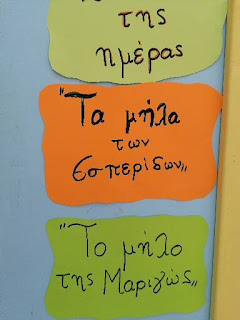 της
ημέρας
"Τα μήλα
των
Εσπερίδων,,
"Το μήλο
της Μαριγώς,,